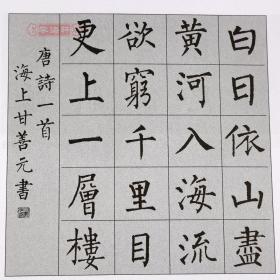 白日依山盡
黃河入海流
欲窮千里目
更上一層樓
唐詩一首
海上甘善元書